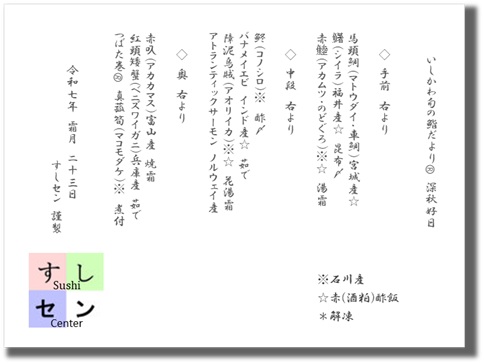 いしかわ旬の鮨だより㊗ 深秋好日
◇ 手前 右より
馬頭鯛(マトウダイ・車鯛)宮城産☆
鱪(シイラ)福井産☆ 昆布〆
赤鯥(アカムツ・のどぐろ)※☆ 湯霜
◇ 中段 右より
鮗(コノシロ)※ 酢〆
バナメイエビ インド産☆ 茹で
障泥烏賊(アオリイカ)※☆ 花湯霜
アトランティックサーモン ノルウェイ産
◇ 奥 右より
赤魳(アカカマス)富山産 焼霜
紅頭矮蟹(ベニズワイガニ)兵庫産 茹で
つばた巻㊗ 真菰筍(マコモダケ)※ 煮付
令和七年 霜月 二十三日
すしセン 謹製
※石川産
☆赤(酒粕)酢飯
＊解凍
すし
Sushi
セン
Center